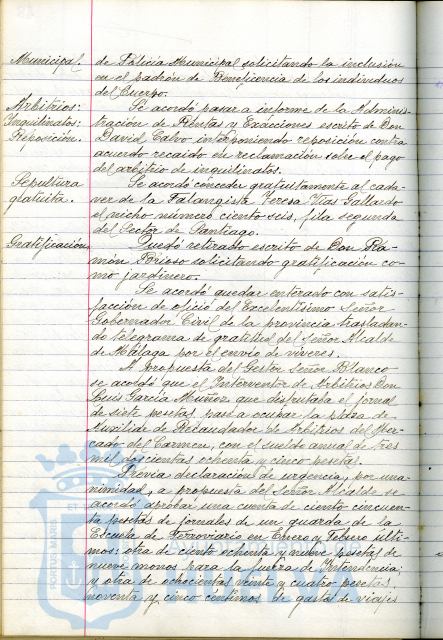 Municipal. de Policía Municipal solicitando la inclusión
en el padrón de Beneficencia de los individuos
del Cuerpo.
Arbitrios: Se acordó pasar a informe de la Adminis-
Inquilinatos: tración de Rentas y Exacciones escrito de Don
Reposición. David Calvo interponiendo reposición contra
acuerdo recaido en reclamación sobre el pago
del arbitrio de inquilinatos.
Sepultura Se acordó conceder gratuitamente al cada-
gratuita. ver de la Falangista Teresa Vías Gallardo
el nicho número ciento seis, fila segunda
del Sector de Santiago.
Gratificación. Quedó retirado escrito de Don Ra-
món Brioso solicitando gratificación co-
mo jardinero.
Se acordó quedar enterado con satis-
facción de oficio del Excelentísimo Señor
Gobernador Civil de la provincia trasladan-
do telegrama de gratitud del Señor Alcalde
de Málaga por el envío de víveres.
A propuesta del Gestor Señor Blanco
se acordó que el Interventor de Arbitrios Don
Luís García Muñoz que disfrutaba el jornal
de siete pesetas pase a ocupar la plaza de
Auxiliar de Recaudador de Arbitrios del Mer-
cado del Carmen, con el sueldo anual de tres
mil doscientas ochenta y cinco pesetas.
Previa declaración de urgencia, por una-
nimidad, a propuesta del Señor Alcalde se
acordó aprobar una cuenta de ciento cincuen-
ta pesetas de jornales de un guarda de la
Escuela de Ferroviario en Enero y Febrero últi-
mos; otra de ciento ochenta y nueve pesetas de
nueve monos para la fuerza de Intendencia;
y otra de ochocientas veinte y cuatro pesetas
noventa y cinco céntimos de gastos de viajes
PORTUS MARIS ET